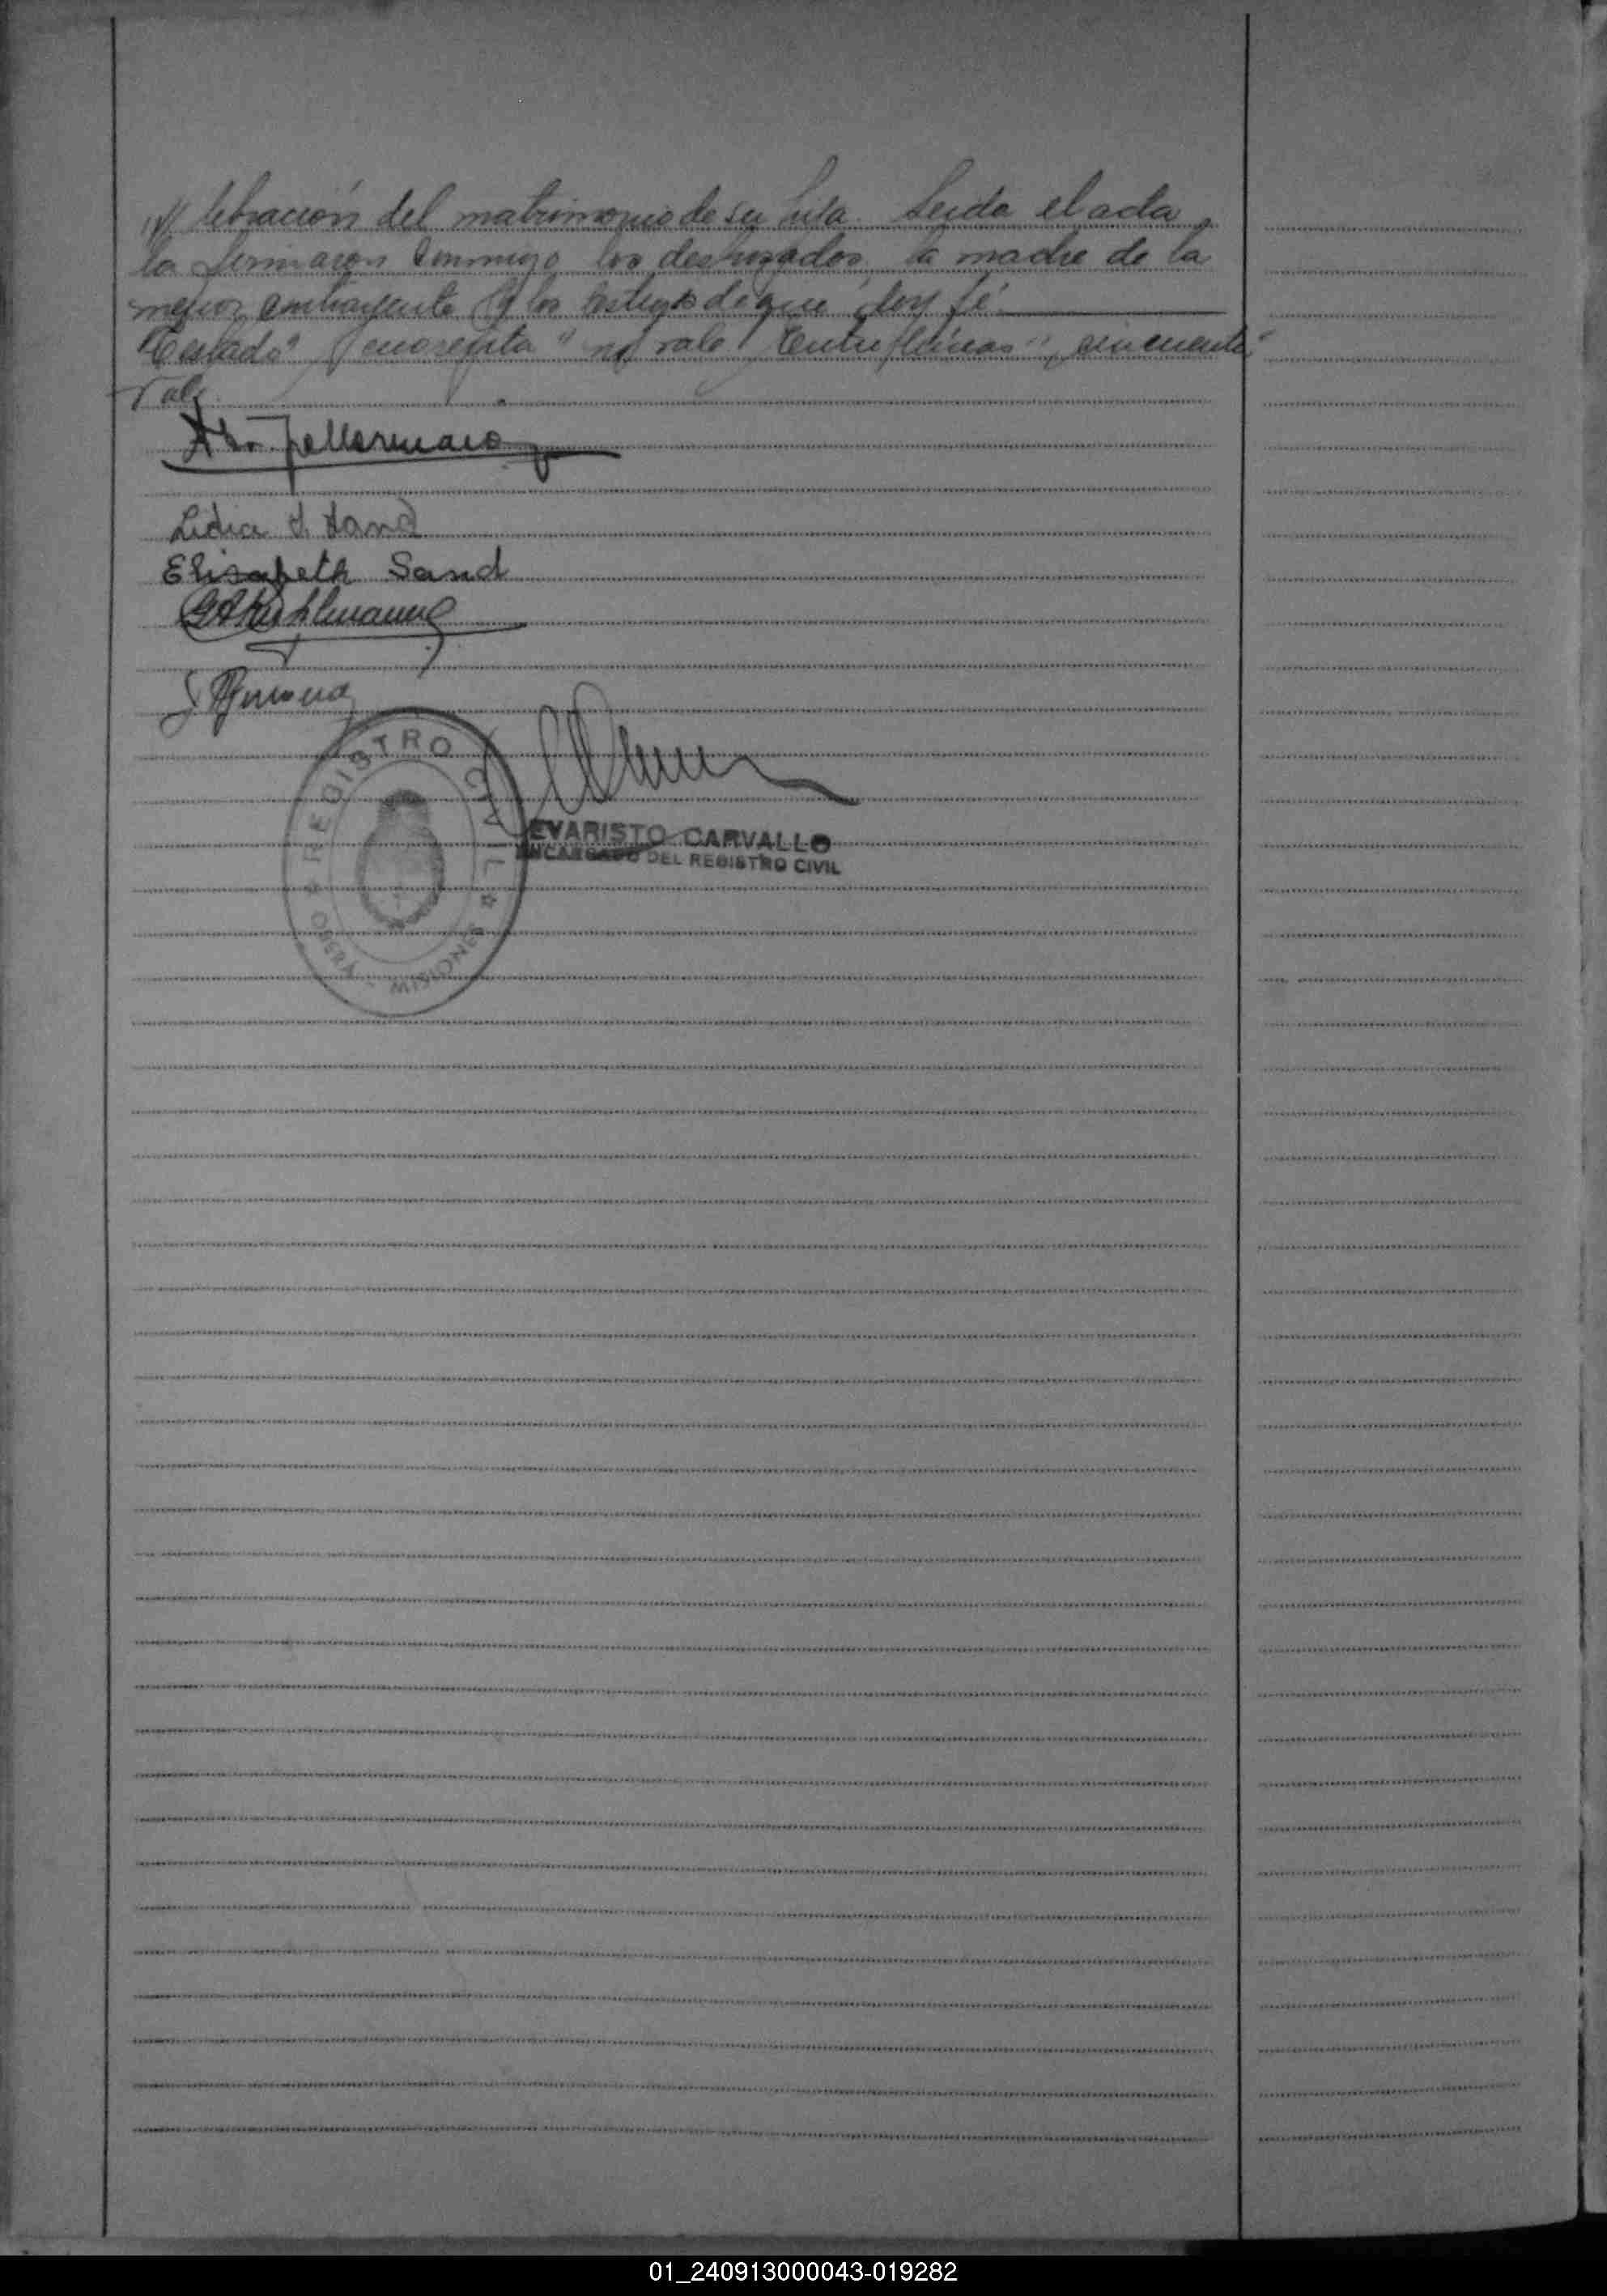 lebración del matrimonio de su hija. Leída el acta
la firmaron conmigo los desposados, la madre de la
menor contrayente y los testigos de que doy fé.
"Testado" "cuarenta" no vale. "Entre líneas", "cincuenta"
Vale
Lidia S. Sand
Elisabeth Sand
REGISTRO CIVIL
OBERA - MISIONES
EVARISTO CARVALLO
ENCARGADO DEL REGISTRO CIVIL
01_240913000043-019282